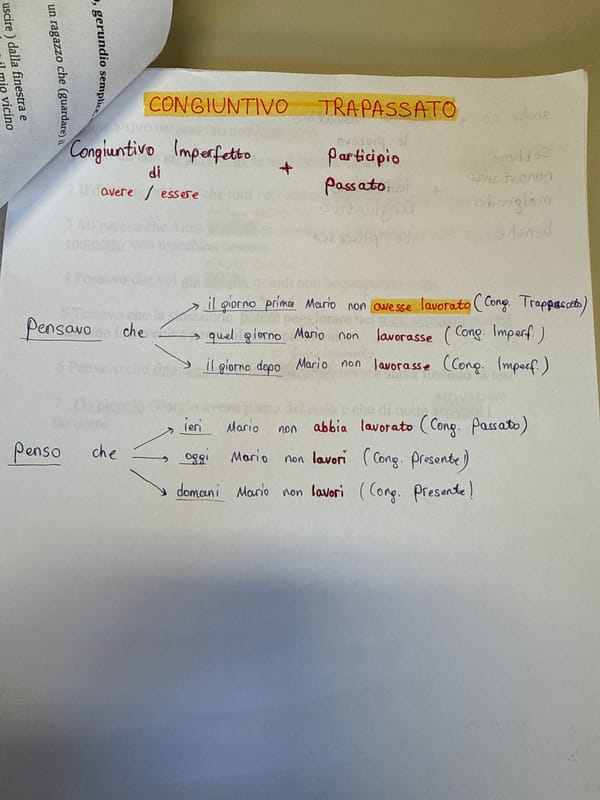 , gerundio semplice,
un ragazzo che (guardare) il
uscire) dalla finestra e
il mio vicino
CONGIUNTIVO TRAPASSATO
Congiuntivo Imperfetto + Participio
di Passato
avere / essere
il giorno prima Mario non avesse lavorato (Cong. Trapassato)
Pensavo che quel giorno Mario non lavorasse (Cong. Imperf.)
il giorno dopo Mario non lavorasse (Cong. Imperf.)
ieri Mario non abbia lavorato (Cong. Passato)
Penso che oggi Mario non lavori (Cong. Presente)
domani Mario non lavori (Cong. Presente)